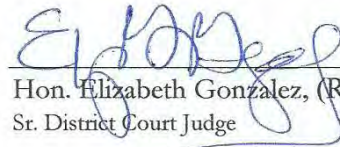 Hon. Elizabeth Gonzalez, (R
Sr. District Court Judge